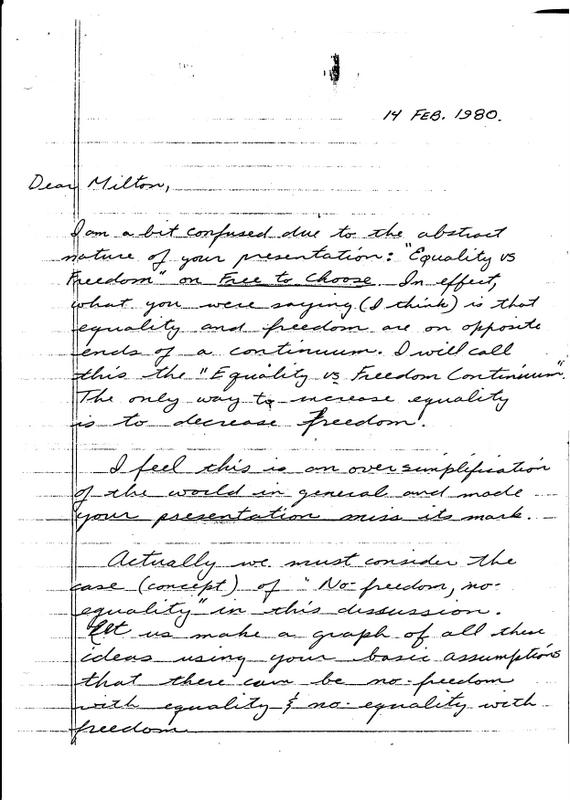 14 FEB. 1980.
Dear Milton,
I am a bit confused due to the abstract
nature of your presentation: "Equality vs
Freedom" on Free to Choose. In effect,
what you were saying (I think) is that
equality and freedom are on opposite
ends of a continuum. I will call
this the "Equality vs Freedom Continuum".
The only way to increase equality
is to decrease freedom!
I feel this is an over simplification
of the world in general and made
your presentation miss its mark.
Actually we must consider the
case (concept) of "No-freedom, no-
equality" in this discussion.
Let us make a graph of all these
ideas using your basic assumptions
that there can be no-freedom
with equality & no-equality with
freedom.